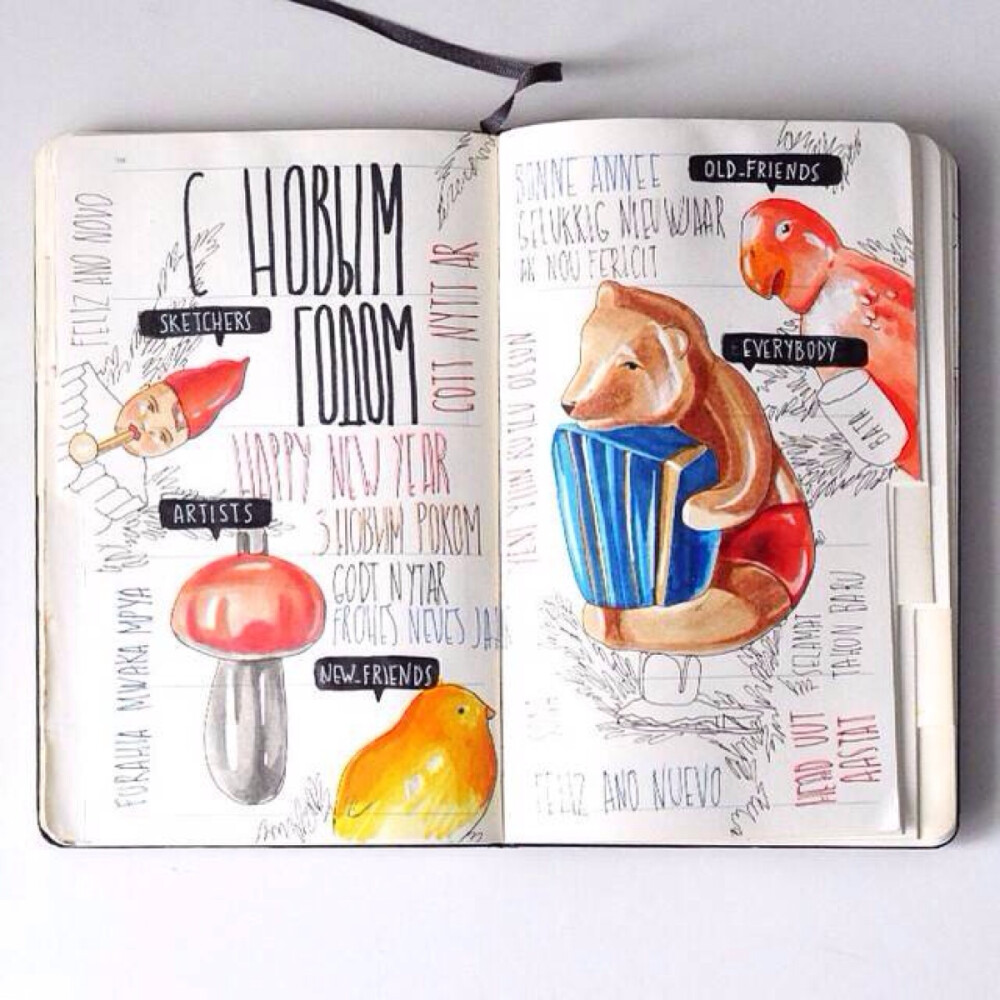 FELIZ ANO NOVO
С НОВЫМ
ГОДОМ
SKETCHERS
GOTT NYTT AR
HAPPY NEW YEAR
З НОВИМ РОКОМ
ARTISTS
GODT NYTAR
FROHES NEUES
NEW_FRIENDS
FURAHA MWAKA MPYA
BONNE ANNEE
GELUKKIG NIEUWJAAR
AN NOU FERICIT
OLD_FRIENDS
EVERYBODY
ВАТА
YENI YILIN KUTLU OLSUN
SELAMAT
TAHUN BARU
HEAD UUT
AASTAT
FELIZ ANO NUEVO